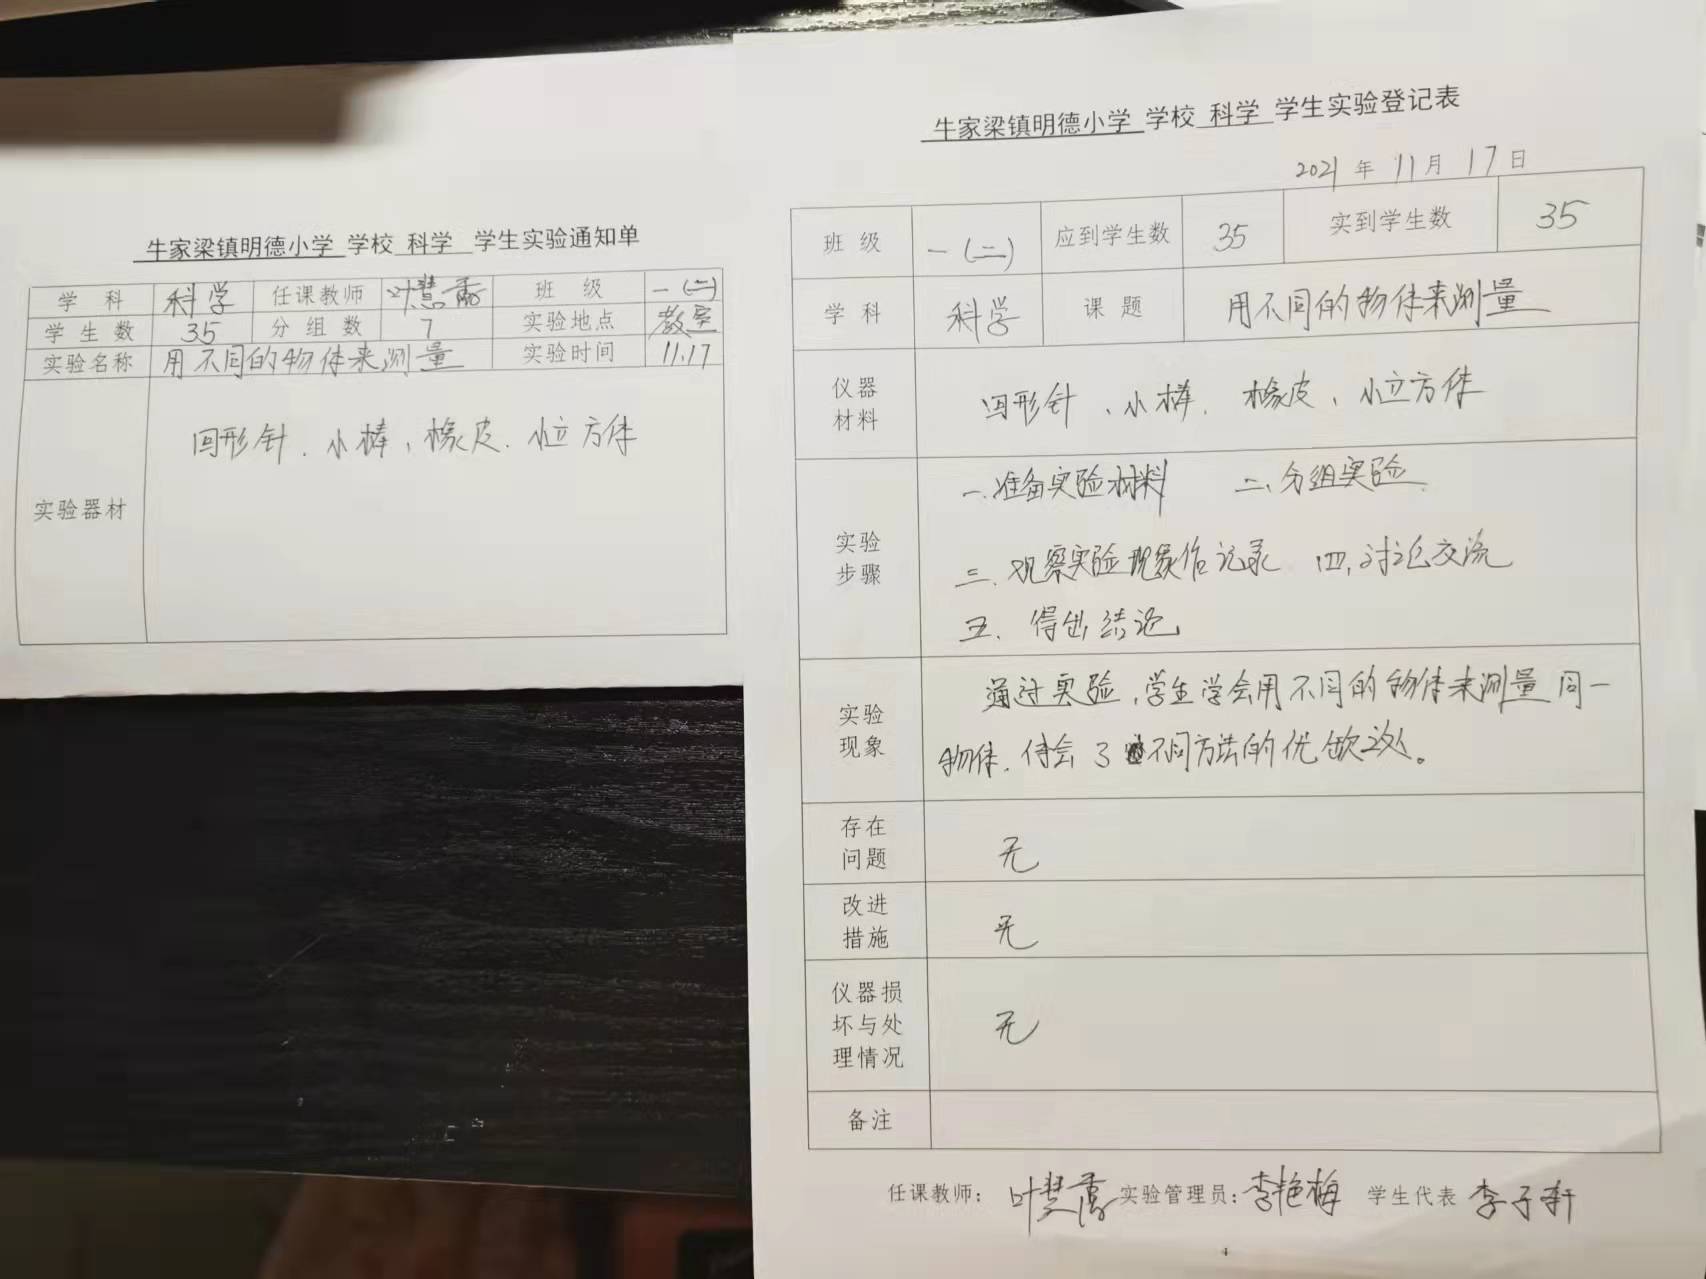 牛家梁镇明德小学 学校 科学 学生实验通知单
学科 科学 任课教师 叶慧 班级 一(二)
学生数 35 分组数 7 实验地点 教室
实验名称 用不同的物体来测量 实验时间 11.17
实验器材
回形针、小棒、橡皮、小立方体
牛家梁镇明德小学 学校 科学 学生实验登记表
2021年11月17日
班级 一(二) 应到学生数 35 实到学生数 35
学科 科学 课题 用不同的物体来测量
仪器
材料
回形针、小棒、橡皮、小立方体
实验
步骤
一.准备实验材料 二、分组实验
三、观察实验现象作记录 四、讨论交流
五、得出结论
实验
现象
通过实验,学生学会用不同的物体来测量同一
物体.体会了不同方法的优缺之处。
存在
问题
无
改进
措施
无
仪器损
坏与处
理情况
无
备注
任课教师: 叶慧 实验管理员:李艳梅 学生代表 李子轩
4